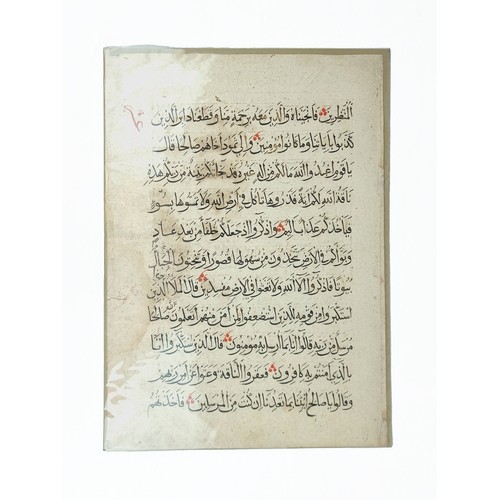 المنتظرين فانجيناه والذين معه برحمة منا وقطعنا دابر الذين
كذبوا باياتنا وما كانوا مؤمنين والى ثمود اخاهم صالحا قال
يا قوم اعبدوا الله مالكم من اله غيره قد جاءتكم بينة من ربكم هذه
ناقة الله لكم اية فذروها تاكل في ارض الله ولا تمسوها بسوء
فياخذكم عذاب اليم واذكروا اذ جعلكم خلفا من بعد عاد
وبواكم في الارض تتخذون من سهولها قصورا وتنحتون الجبال
بيوتا فاذكروا الاء الله ولا تعثوا في الارض مفسدين قال الملا الذين
استكبروا من قومه للذين استضعفوا لمن امن منهم اتعلمون ان صالحا
مرسل من ربه قالوا انا بما ارسل به مؤمنون قال الذين استكبروا انا
بالذي امنتم به كافرون فعقروا الناقة وعتوا عن امر ربهم
وقالوا يا صالح ائتنا بما تعدنا ان كنت من المرسلين فاخذتهم